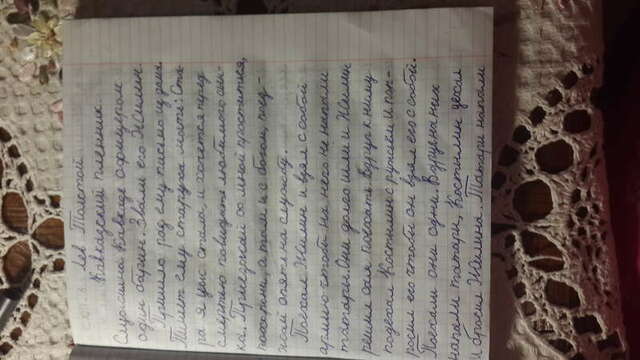 Лев Толстой
Кавказский пленник.
Служил на Кавказе офицером
один барин. Звали его Жилин.
Пришло раз ему письмо из дома.
Пишет ему старуха мать: Ста-
ра я уж стала и хочется перед
смертью повидать любимого сын-
ка. Приезжай со мной проститься,
похорони, а там и с богом, поез-
жай опять на службу.
Поехал Жилин и взял с собой
армию чтоб на него не напали
татары. Они долго шли и Жилин
решил сам поехать. Вдруг к нему
подъехал Костылин с ружьём и поп-
росил его чтобы он взял его с собой.
Поехали они одни. Вдруг на них
напали татары, Костылин уехал
и бросил Жилина. Татары напали